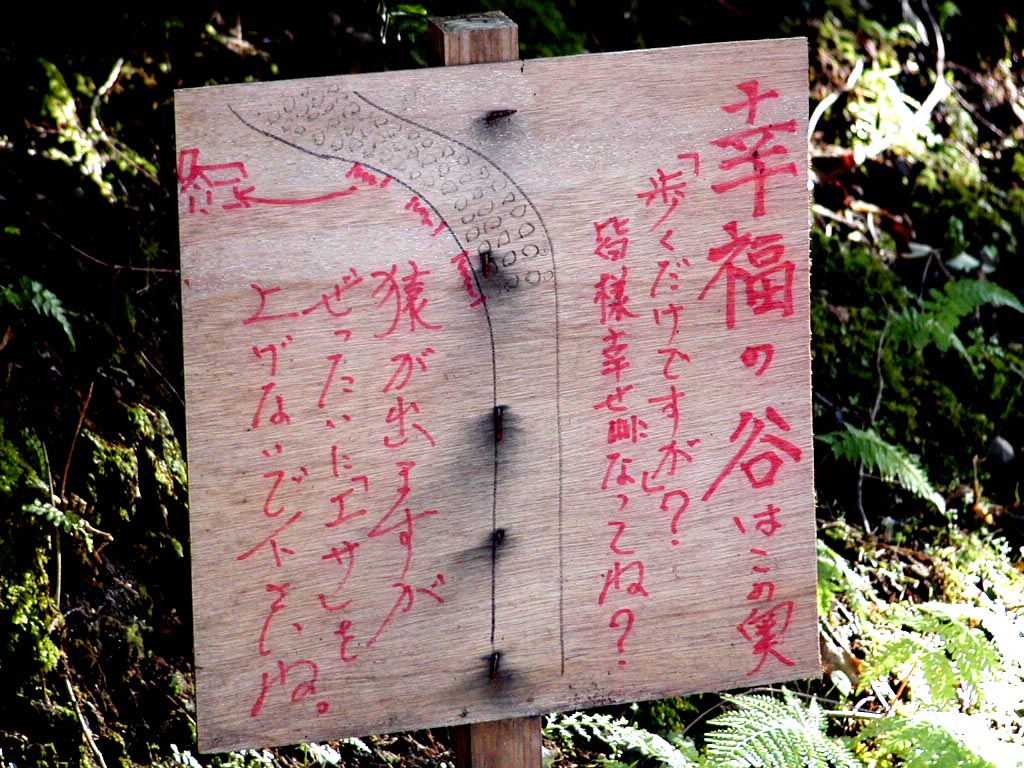 幸福の谷はこの奥
「歩くだけですが」?
皆様幸せになってね?
猿が出ますが
ぜったいに「エサ」を
上げないで下さいね。